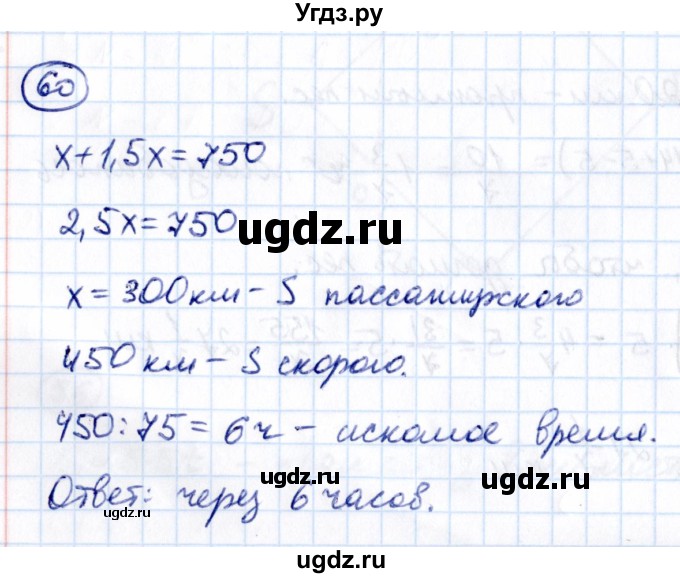 Угдз.ру
60
x+1,5x=750
2,5x=750
ugdz.ru
x=300км - S пассажирского
450км - S скорого.
450:75=6ч - искомое время.
ugdz.ru
Ответ: через 6 часов.
ugdz.ru
ugdz.ru